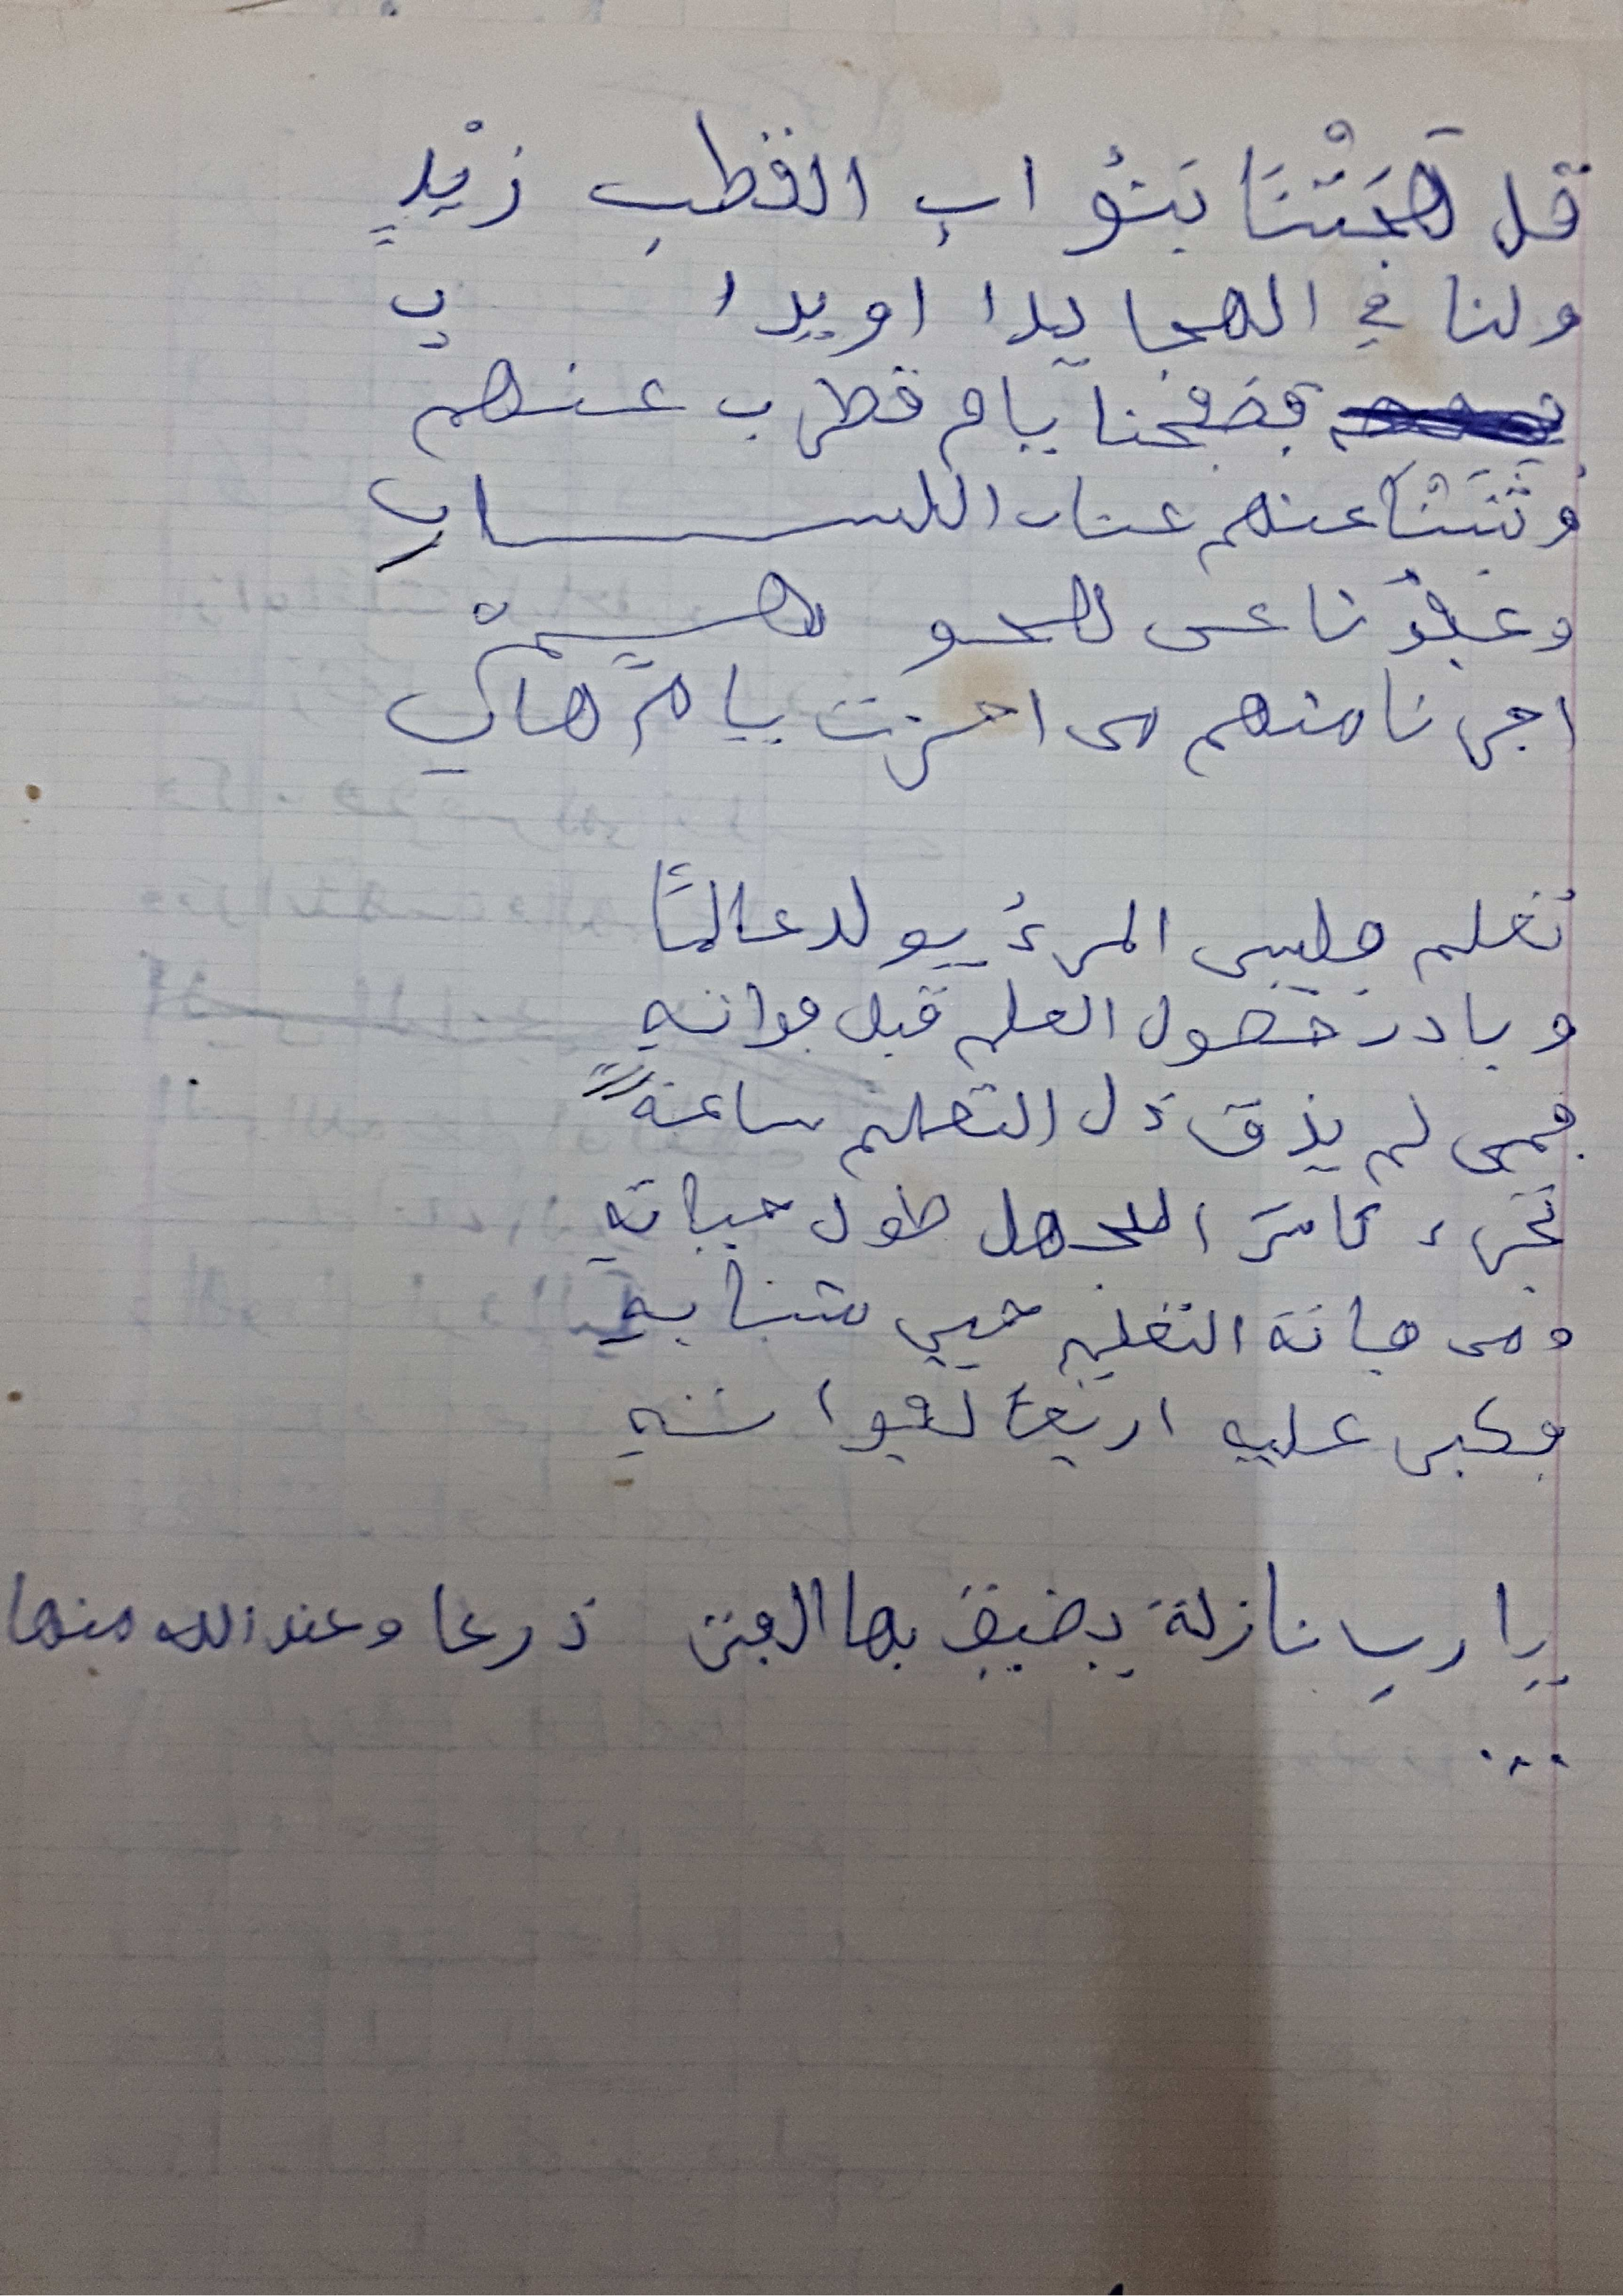 قل هَجَتْنَا بَنُو اب القطبِ زيْدٍ
ولنا في الهجا يدا اويدا بِ
فصفحنا يام قطرب عنهم
وثَنَيْنَا عنهم عنان اللسـان
وعفوْنا عن الهجو
اجرنا منهم من احزت يا مرهاب
تعلم فليس المرءُ يولد عالمًا
وبادر حصول العلم قبل فواته
فمن لم يذق ذل التعلم ساعة
تجرء كأس الجهل طول حياته
ومن فاته التعليم حين شبابه
فكبر عليه اربعا لفوا ته
يا رب نازلة يضيق بها الفتى ذرعا وعند الله منها
...